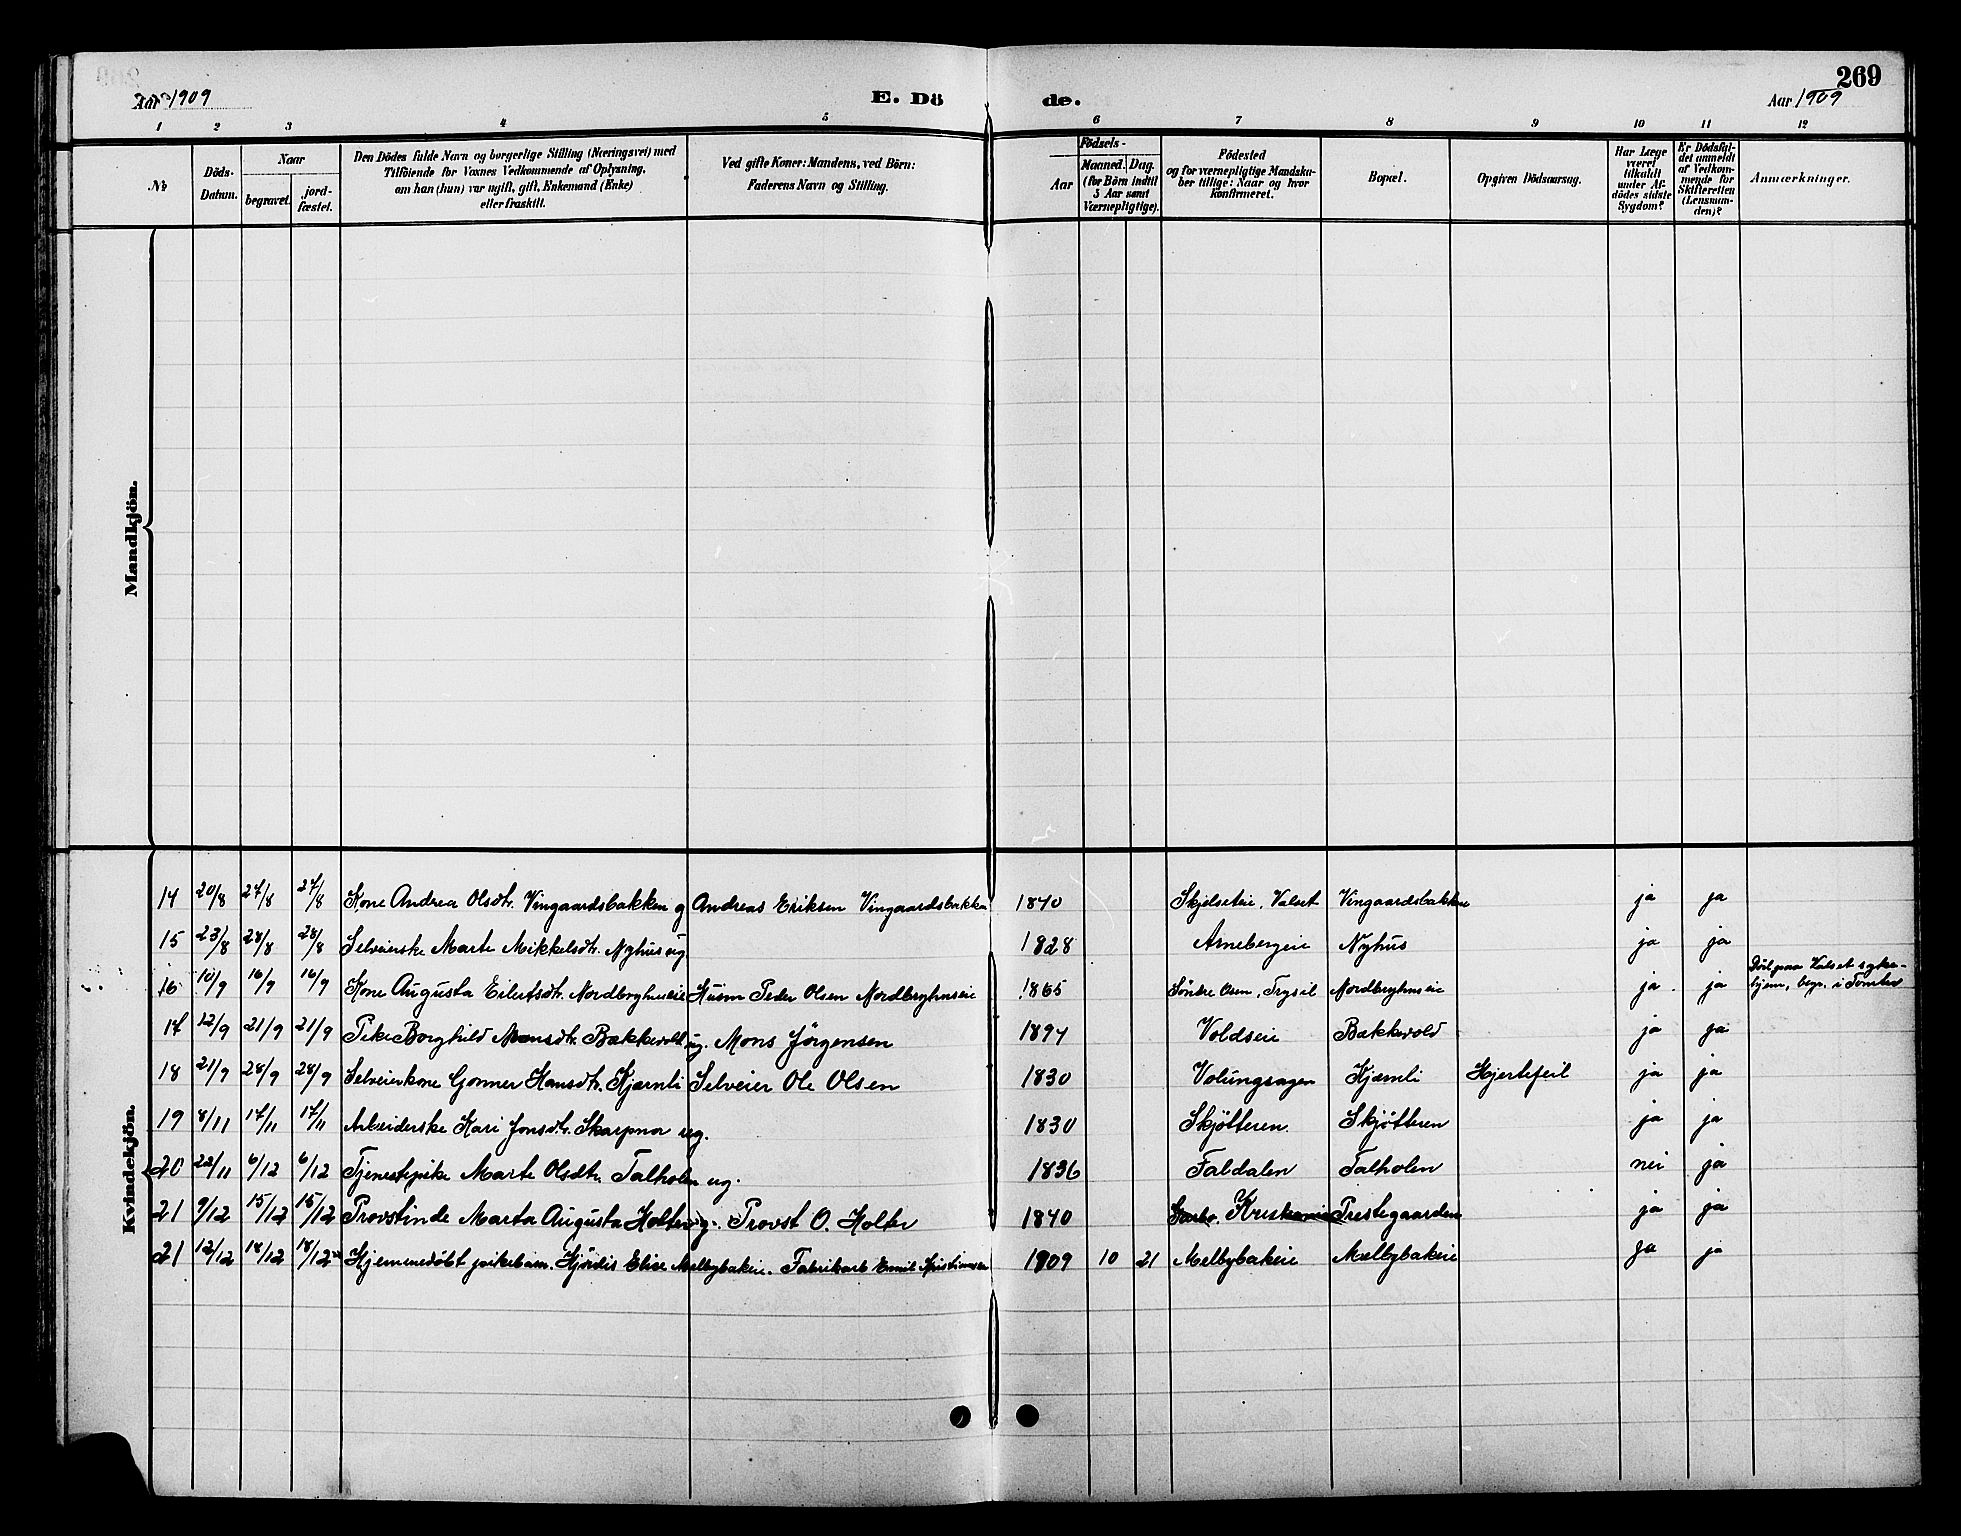 Aar 1909 E. Dö de. Aar 1909 269
1 2 3 4 5 6 7 8 9 10 11 12
No
Döds-Datum.
Naar
begravet.
jord-fæstet.
Den Dödes fulde Navn og borgerlige Stilling (Næringsvei) med
Tilföiende for Voxnes Vedkommende af Oplysning,
om han (hun) var ugift, gift, Enkemand (Enke)
eller fraskilt.
Ved gifte Koner: Mandens, ved Börn:
Faderens Navn og Stilling.
Födsels-
Aar
Maaned. Dag.
(for Börn indtil
5 Aar samt
Værnepligtige).
Födested
og for værnepligtige Mandska-
ber tillige: Naar og hvor
konfirmeret.
Bopæl.
Opgiven Dödsaarsag.
Har Læge
været
tilkaldt
under Af-
dödes sidste
Sygdom?
Er Dödsfal-
det anmeldt
af Vedkom-
mende for
Skifteretten
(Lensman-
den)?
Anmærkninger.
Mandkjön.
Kvindekjön.
14 20/8 27/8 27/8 Kone Andrea Olsdtr. Vingaardsbakken g Andreas Eriksen Vingaardsbakken 1840 Skjelseteie, Valset Vingaardsbakken ja ja
15 23/8 28/8 28/8 Selveierske Marte Mikkelsdtr. Nyhus ug. 1828 Arnebergeie Nyhus ja ja
16 10/9 16/9 16/9 Kone Augusta Eilertsdtr. Nordberghuseie Husm Peder Olsen Nordberghuseie 1865 Söndre Osen, Trysil Nordberghuseie ja ja Död paa Valset syke-
hjem, begr. i Tomter
17 12/9 21/9 21/9 Pike Borghild Monsdtr. Bækkevold ug. Mons Jörgensen 1897 Voldseie Bækkevold ja ja
18 21/9 28/9 28/9 Selveierkone Gonner Hansdtr. Kjærnli Selveier Ole Olsen 1830 Volungsagen Kjærnli Hjertefeil ja ja
19 8/11 17/11 17/11 Arbeiderske Kari Jonsdtr. Skarpnor ug. 1830 Skjötteren Skjötteren ja ja
20 22/11 6/12 6/12 Tjenestepike Marte Olsdtr. Talholen ug. 1836 Faldalen Talholen nei ja
21 9/12 15/12 15/12 Provstinde Marta Augusta Holter g. Provst O. Holter 1840 Kristiania Prestegaarden ja ja
21 12/12 18/12 18/12 Hjemmedöbt pikebarn. Hjördis Elise Mælbybakeie. Fabrikarb Emil Kristiansen 1909 10 21 Mælbybakeie Mælbybakeie ja ja